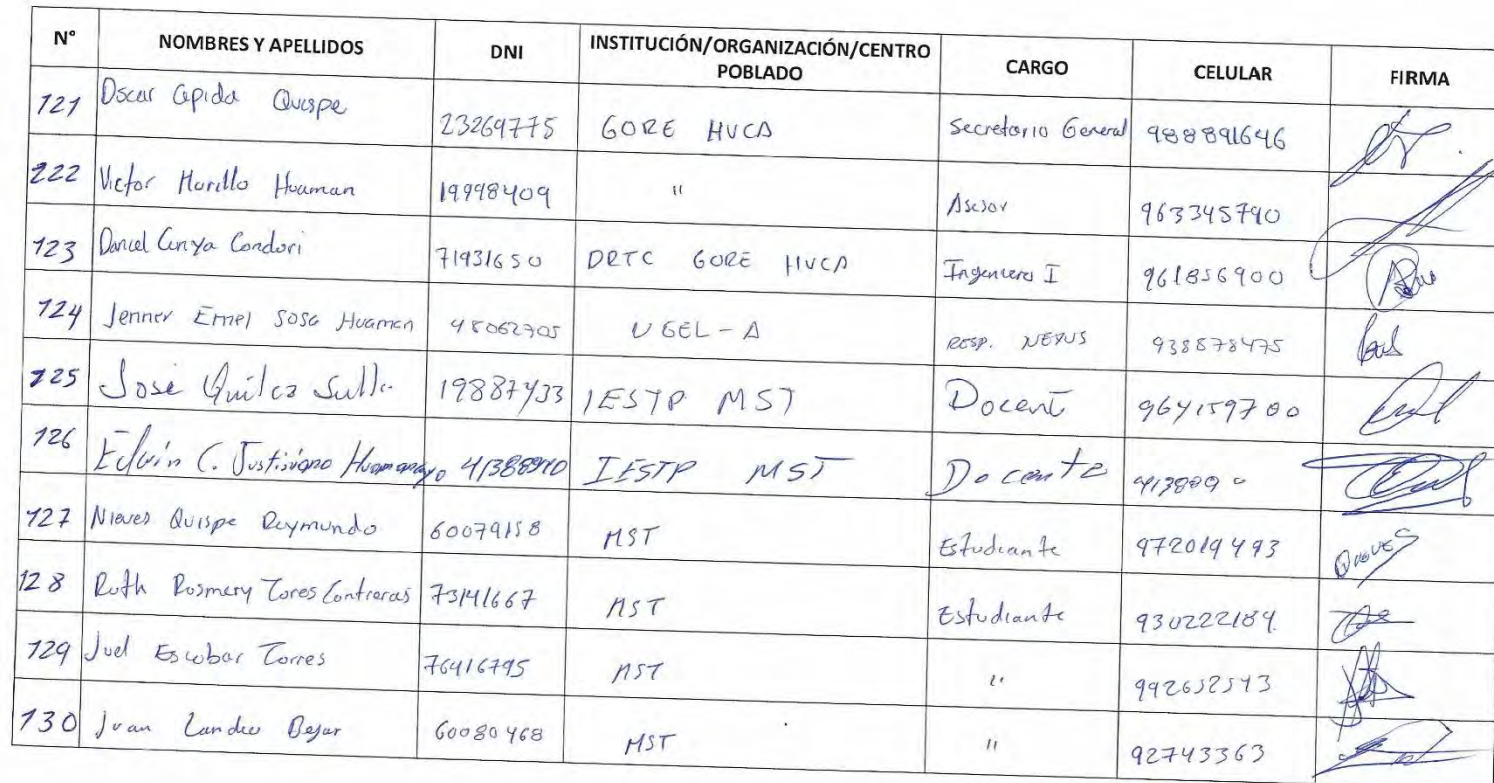 N° NOMBRES Y APELLIDOS DNI INSTITUCIÓN/ORGANIZACIÓN/CENTRO POBLADO CARGO CELULAR FIRMA
121 Oscar Quispe 23269775 GORE HVCA Secretario General 988891646
222 Victor Murillo Huaman 19998409 " Asesor 963345790
123 Daniel Condori 71931650 DRTC GORE HVCA Ingeniero I 961856900
124 Jenner Emel Sosa Huaman 48062705 UGEL-A RESP. NEXUS 938878475
125 José Quilca 19887433 IESTP MST Docente 964159700
126 Edwin C. Justiniano IESTP MST Docente
127 Nieves Quispe Reymundo 60079158 MST Estudiante 972019493
128 Ruth Rosmery Torres Contreras 73141667 MST Estudiante 930222184
129 Joel Escobar Torres 76416795 MST " 992652543
130 Juan Bejar 60080468 MST " 92743363